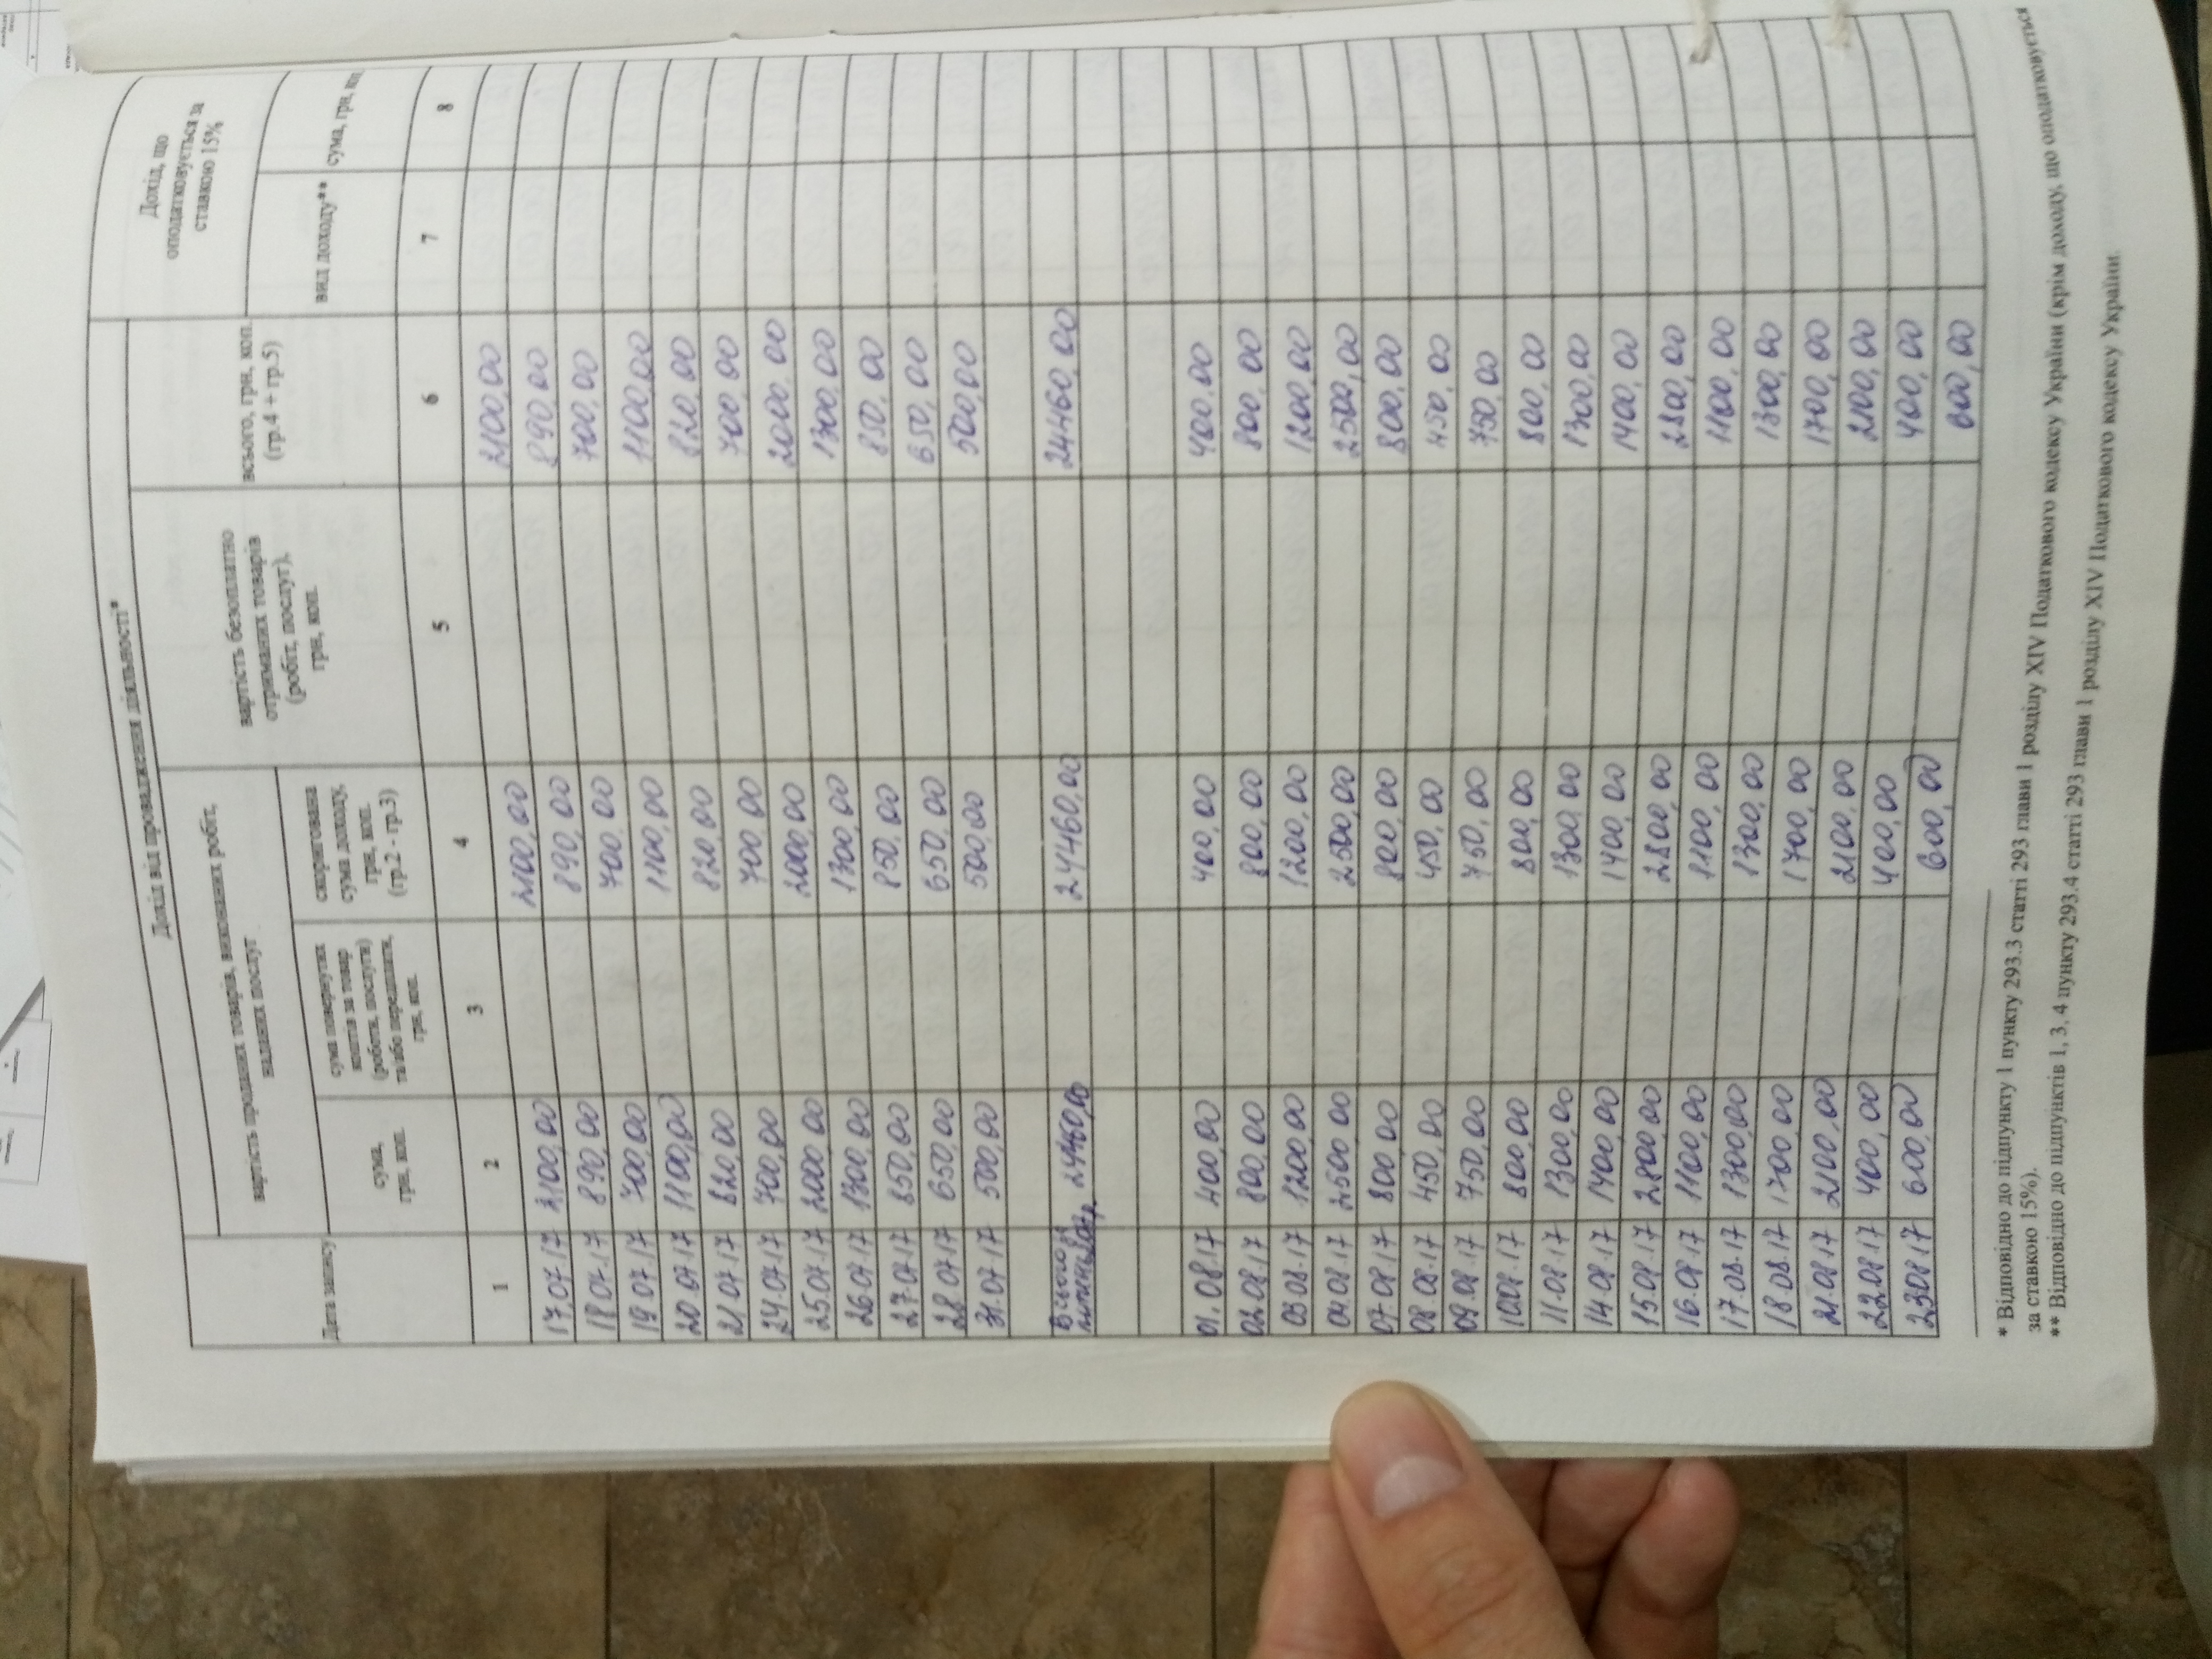 Дохід від провадження діяльності*
Дохід, що оподатковується за ставкою 15%
Дата запису
вартість проданих товарів, виконаних робіт, наданих послуг
вартість безоплатно отриманих товарів (робіт, послуг), грн, коп.
всього, грн, коп. (гр.4 + гр.5)
вид доходу**
сума, грн, коп.
сума, грн, коп.
сума повернутих коштів за товар (роботи, послуги) та/або передплати, грн, коп.
скоригована сума доходу, грн, коп. (гр.2 - гр.3)
1 2 3 4 5 6 7 8
17.07.17 2100,00 2100,00 2100,00
18.07.17 890,00 890,00 890,00
19.07.17 700,00 700,00 700,00
20.07.17 1100,00 1100,00 1100,00
21.07.17 820,00 820,00 820,00
24.07.17 700,00 700,00 700,00
25.07.17 2000,00 2000,00 2000,00
26.07.17 1300,00 1300,00 1300,00
27.07.17 850,00 850,00 850,00
28.07.17 650,00 650,00 650,00
31.07.17 500,00 500,00 500,00
Всього за липень 24460,00 24460,00 24460,00
01.08.17 400,00 400,00 400,00
02.08.17 800,00 800,00 800,00
03.08.17 1200,00 1200,00 1200,00
04.08.17 2500,00 2500,00 2500,00
07.08.17 800,00 800,00 800,00
08.08.17 450,00 450,00 450,00
09.08.17 750,00 750,00 750,00
10.08.17 800,00 800,00 800,00
11.08.17 1300,00 1300,00 1300,00
14.08.17 1400,00 1400,00 1400,00
15.08.17 2800,00 2800,00 2800,00
16.08.17 1100,00 1100,00 1100,00
17.08.17 1300,00 1300,00 1300,00
18.08.17 1700,00 1700,00 1700,00
21.08.17 2100,00 2100,00 2100,00
22.08.17 400,00 400,00 400,00
23.08.17 600,00 600,00 600,00
* Відповідно до підпункту 1 пункту 293.3 статті 293 глави 1 розділу XIV Податкового кодексу України (крім доходу, що оподатковується
за ставкою 15%).
** Відповідно до підпунктів 1, 3, 4 пункту 293.4 статті 293 глави 1 розділу XIV Податкового кодексу України.